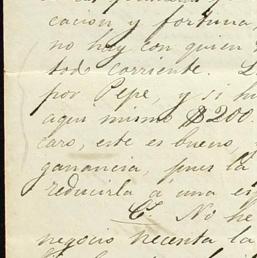 cacion y fortuna,
no hay con quien
todo corriente.
por Pepe, y si
aqui mismo $200.
caro, este es bueno,
ganancia, pues la
reducirla á una es
C. No he
negocio necesita la